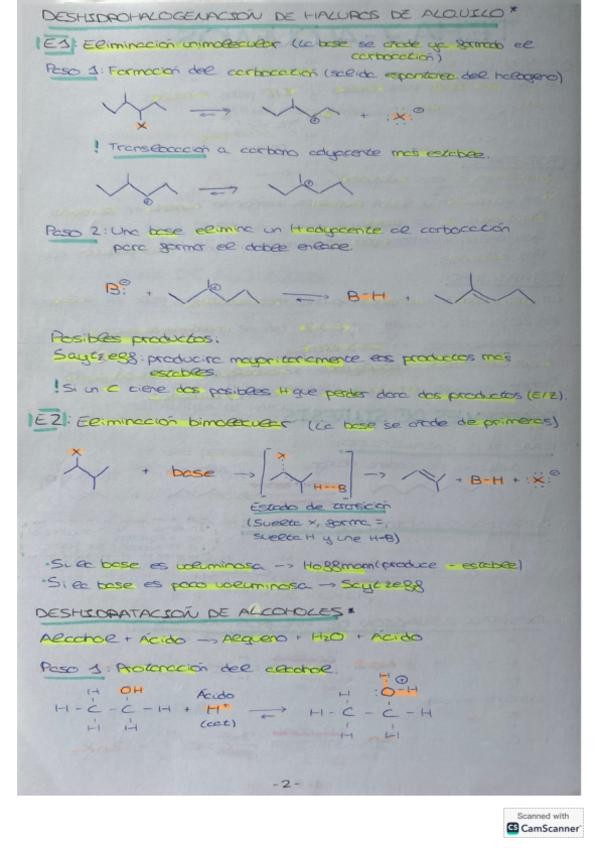 DESHIDROHALOGENACIÓN DE HALUROS DE ALQUILO*
E1: Eliminación unimolecular (La base se añade ya formado el
carbocatión)
Paso 1: Formación del carbocatión (salida espontánea del halógeno)
X
⊕
+ :X: ⊖
! Translocación a carbono adyacente más estable.
⊕
⊕
Paso 2: Una base elimina un H adyacente al carbocatión
para formar el doble enlace.
B: ⊖ + ⊕ B-H +
Posibles productos.
Saytzeff: producirá mayoritariamente los productos más
estables.
! Si un C tiene dos posibles H que perder dará dos productos (E/Z).
E2: Eliminación bimolecular (La base se añade de primeras)
X
+ base → [X H--B] → + B-H + :X: ⊖
Estado de transición
(Suelta X, forma =,
suelta H y une H-B)
· Si la base es voluminosa → Hoffmann (produce - estable)
· Si la base es poco voluminosa → Saytzeff
DESHIDRATACIÓN DE ALCOHOLES*
Alcohol + Ácido → Alqueno + H₂O + Ácido
Paso 1: Protonación del alcohol.
H OH Ácido H H ⊕
:O-H
H - C - C - H + H⁺ H - C - C - H
H H (cat) H H
- 2 -
Scanned with
CS CamScanner